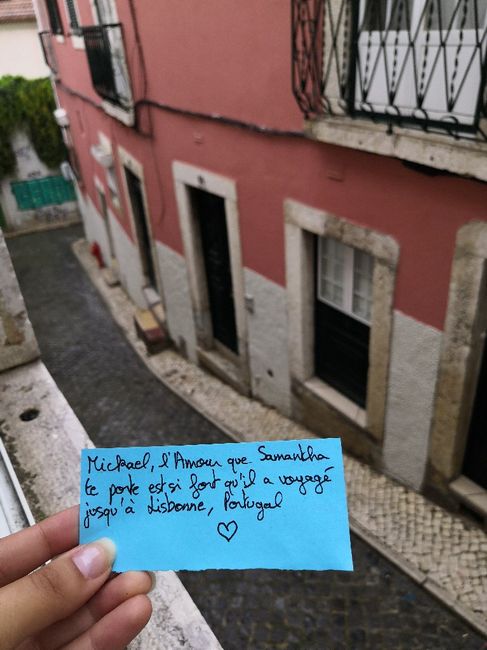 Mickael, l'Amour que Samantha
te porte est si fort qu'il a voyagé
jusqu'à Lisbonne, Portugal
♡